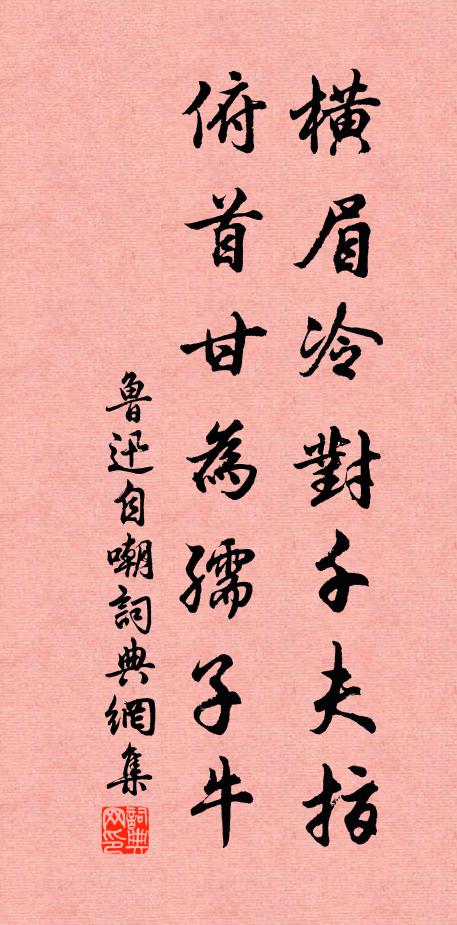 橫眉冷對千夫指
俯首甘為孺子牛
魯迅自嘲詞典網集
詞典网印